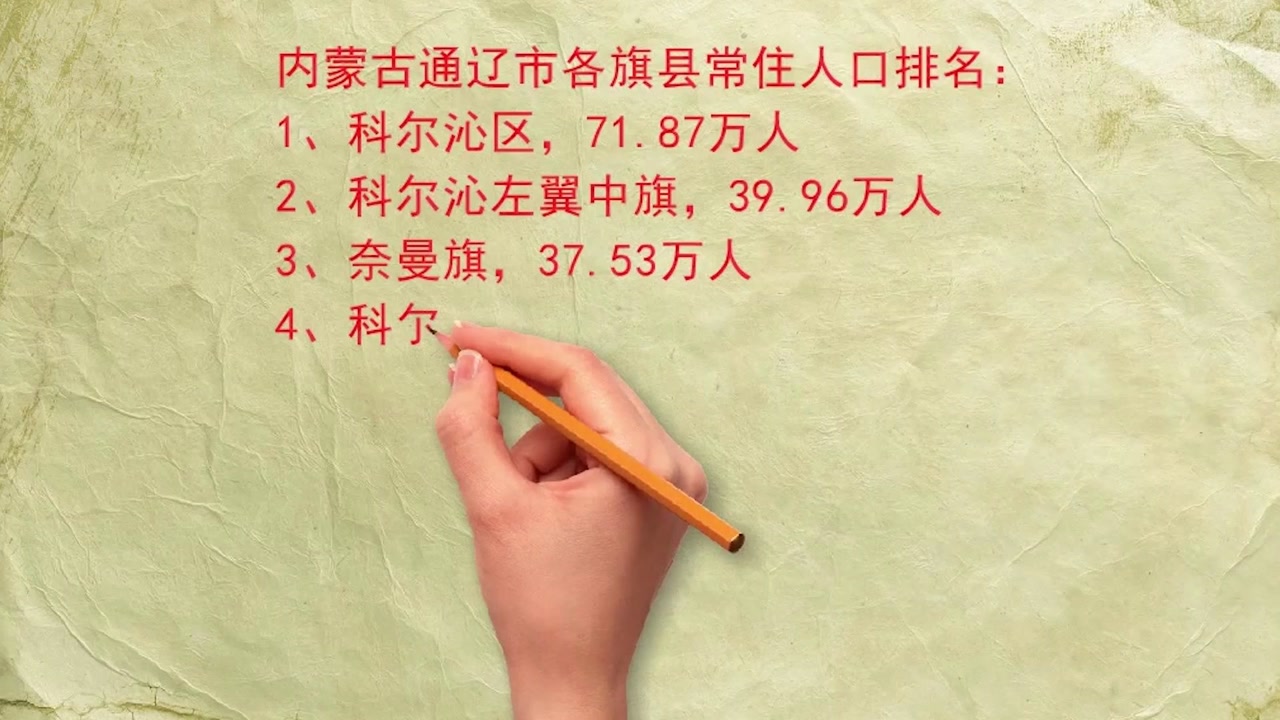 内蒙古通辽市各旗县常住人口排名：
1、科尔沁区，71.87万人
2、科尔沁左翼中旗，39.96万人
3、奈曼旗，37.53万人
4、科尔